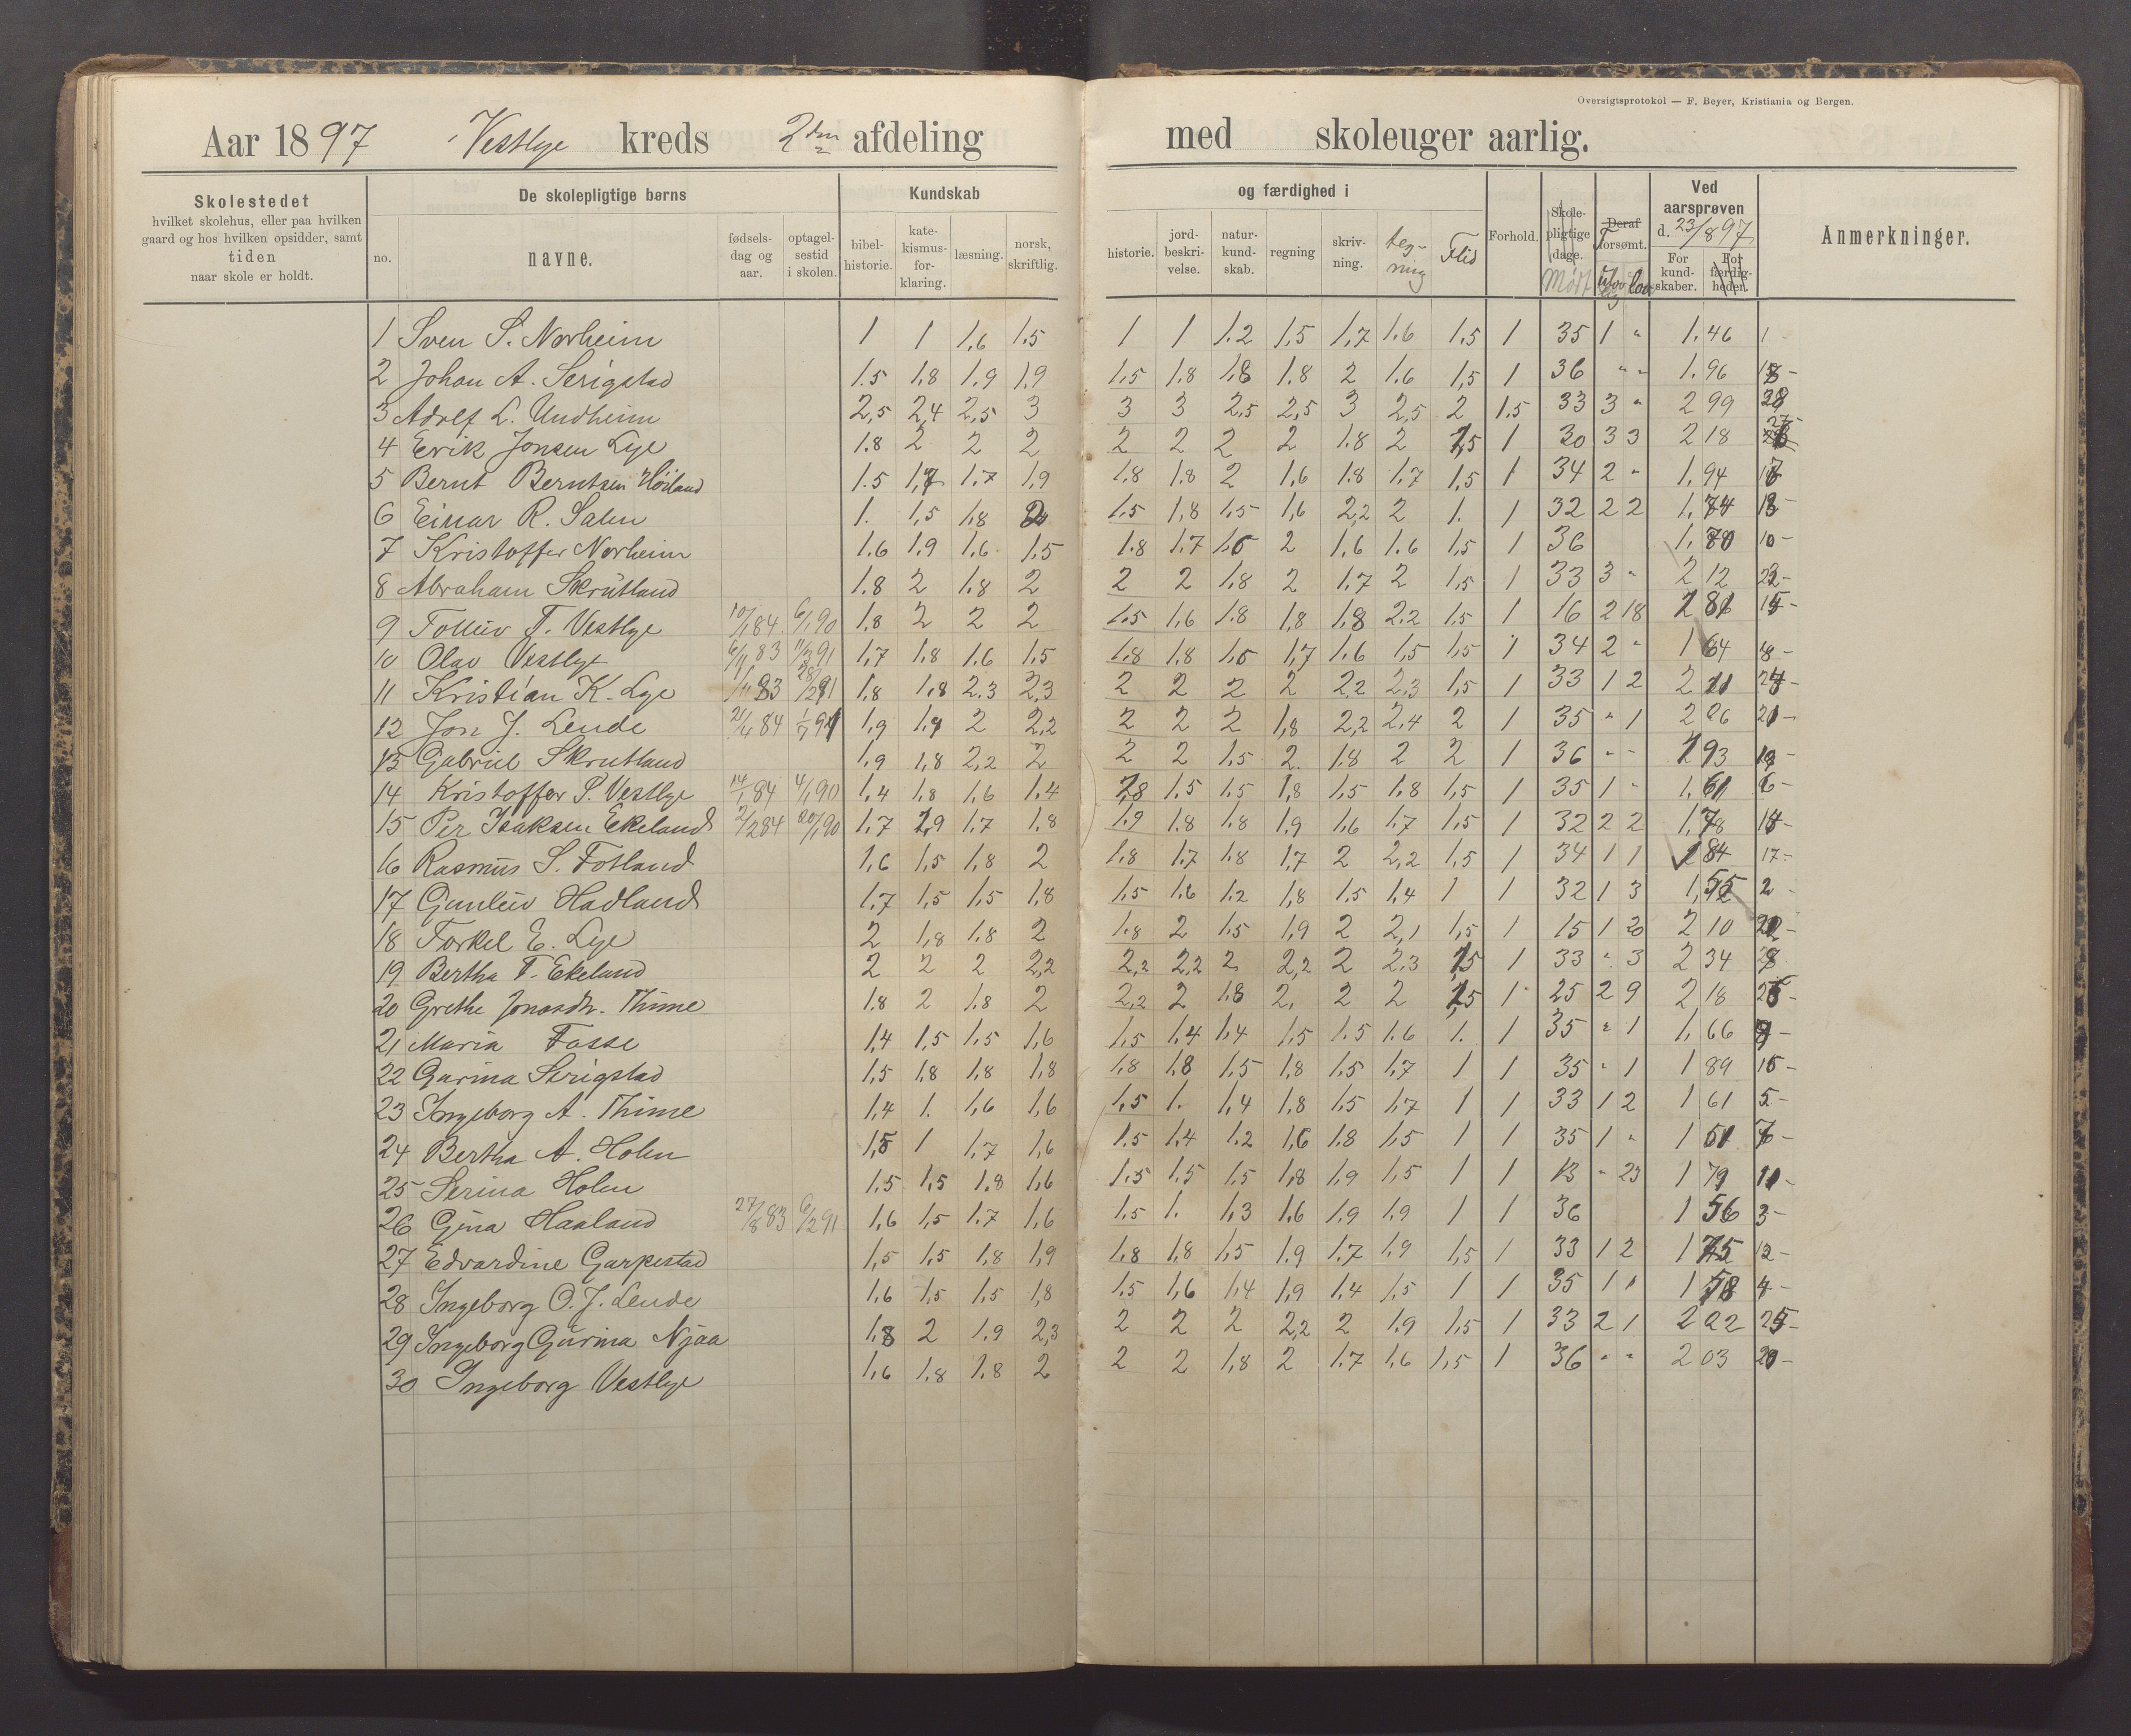 Oversigtsprotokol — F. Beyer, Kristiania og Bergen.
Aar 1897 Vestlye kreds 2den afdeling med skoleuger aarlig.
Skolestedet hvilket skolehus, eller paa hvilken gaard og hos hvilken opsidder, samt tiden naar skole er holdt.
De skolepligtige børns
no. navne. fødsels-dag og aar. optagel-sestid i skolen.
Kundskab og færdighed i
bibel-historie. kate-kismus-for-klaring. læsning. norsk, skriftlig. historie. jord-beskri-velse. natur-kund-skab. regning skriv-ning. teg-ning Flid
Forhold. Skole-pligtige dage. Mødt Deraf forsømt. lov
Ved aarsprøven d. 23/8 97
For kund-skaber. For færdig-heder.
Anmerkninger.
1 Sven S. Norheim 1 1 1,6 1,5 1 1 1.2 1,5 1,7 1.6 1,5 1 35 1 " 1,46 1
2 Johan A. Serigstad 1.5 1,8 1,9 1,9 1,5 1.8 1,8 1.8 2 1.6 1,5 1 36 " " 1.96
3 Adolf L. Undheim 2,5 2,4 2,5 3 3 3 2,5 2,5 3 2,5 2 1.5 33 3 " 2 99
4 Erik Jonsen Lye 1.8 2 2 2 2 2 2 2 1.8 2 1,5 1 30 3 3 2 18
5 Bernt Berntsen Höiland 1.5 1,7 1.7 1,9 1.8 1.8 2 1,6 1.8 1.7 1,5 1 34 2 " 1,94
6 Einar R. Salen 1. 1,5 1,8 2 1.5 1,8 1,5 1,6 2,2 2 1. 1 32 2 2 1,74
7 Kristoffer Norheim 1.6 1.9 1.6 1.5 1.8 1.7 1,5 2 1,6 1.6 1,5 1 36 1,70 10-
8 Abraham Skrutland 1.8 2 1.8 2 2 2 1,8 2 1.7 2 1,5 1 33 3 " 2 12
9 Tolleiv T. Vestlye 10/1 84 6/1 90 1,8 2 2 2 1.5 1,6 1.8 1,8 1,8 2.2 1,5 1 16 2 18
10 Olav Vestlye 6/11 83 11/3 91 1,7 1,8 1.6 1.5 1.8 1,8 1,5 1,7 1,6 1,5 1,5 1 34 2 " 1 64
11 Kristian K. Lye 83 28/2 91 1,8 1,8 2.3 2,3 2 2 2 2 2,2 2,3 1,5 1 33 1 2 2 11
12 Jon J. Lende 21/4 84 1/7 91 1,9 1,9 2 2,2 2 2 2 1,8 2,2 2,4 2 1 35 " 1
13 Gabriel Skrutland 1,9 1,8 2,2 2 2 2 1.5 2. 1.8 2 2 1 36 " " 1 93
14 Kristoffer P. Vestlye 14/1 84 4/1 90 1,4 1,8 1,6 1,4 1,8 1.5 1,5 1,8 1,5 1,8 1,5 1 35 1 " 1,61 6-
15 Per Isaksen Ekeland 2/2 84 20/1 90 1,7 1,9 1.7 1.8 1.9 1.8 1.8 1,9 1,6 1.7 1,5 1 32 2 2 1,78
16 Rasmus S. Fotland 1,6 1,5 1,8 2 1.8 1.7 1.8 1,7 2 2,2 1,5 1 34 1 1 1 84 17-
17 Gunleiv Hadland 1.7 1,5 1,5 1,8 1,5 1.6 1.2 1,8 1,5 1,4 1 1 32 1 3 1,52 2-
18 Torkel E. Lye 2 1,8 1.8 2 1.8 2 1,5 1,9 2 2,1 1,5 1 15 1 20 2 10
19 Bertha T. Ekeland 2 2 2 2,2 2,2 2,2 2 2,2 2 2,3 1,5 1 33 " 3 2 34
20 Grethe Jonasdtr. Thime 1.8 2 1.8 2 2,2 2 1.8 2, 2 2 1,5 1 25 2 9 2 18
21 Maria Fosse 1,4 1,5 1,5 1,6 1,5 1,4 1,4 1,5 1.5 1.6 1. 1 35 " 1 1,66
22 Gurina Serigstad 1,5 1,8 1,8 1,8 1,8 1,8 1,5 1,8 1,5 1,7 1 1 35 " 1 1 89
23 Ingeborg A. Thime 1.4 1. 1,6 1,6 1,5 1. 1,4 1,8 1,5 1,7 1 1 33 1 2 1 61 5-
24 Bertha A. Holen 1,5 1 1,7 1,6 1.5 1,4 1.2 1,6 1.8 1,5 1 1 35 1 " 1 61
25 Serina Holen 1.5 1,5 1.8 1,6 1.5 1,5 1.5 1,8 1,9 1,5 1 1 13 " 23 1 79 11-
26 Gina Haaland 27/8 83 6/2 91 1,6 1,5 1.7 1,6 1.5 1. 1,3 1.6 1.9 1.9 1 1 36 1 56 3-
27 Edvardine Garpestad 1,5 1.5 1,8 1,9 1,8 1,8 1,5 1.9 1.7 1,9 1,5 1 33 1 2 1 75 12-
28 Ingeborg O. J. Lende 1.6 1,5 1,5 1,8 1.5 1,6 1,4 1,9 1.4 1,5 1 1 35 1 " 1 58 4-
29 Ingeborg Gurina Njaa 1.8 2 1.9 2,3 2 2 2 2,2 2 1.9 1,5 1 33 2 1 2 22 25-
30 Ingeborg Vestlye 1.6 1,8 1.8 2 2 2 1,8 2 1.7 1,6 1,5 1 36 " " 2 03 20-